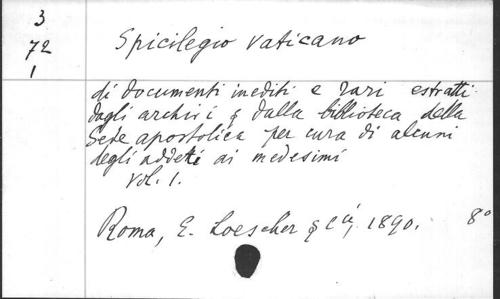 3
72
1
Spicilegio vaticano
di documenti inediti e rari estratti
dagli archivi e dalla biblioteca della
Sede apostolica per cura di alcuni
degli addetti ai medesimi
Vol. 1.
Roma, E. Loescher & C.ia, 1890. 8°